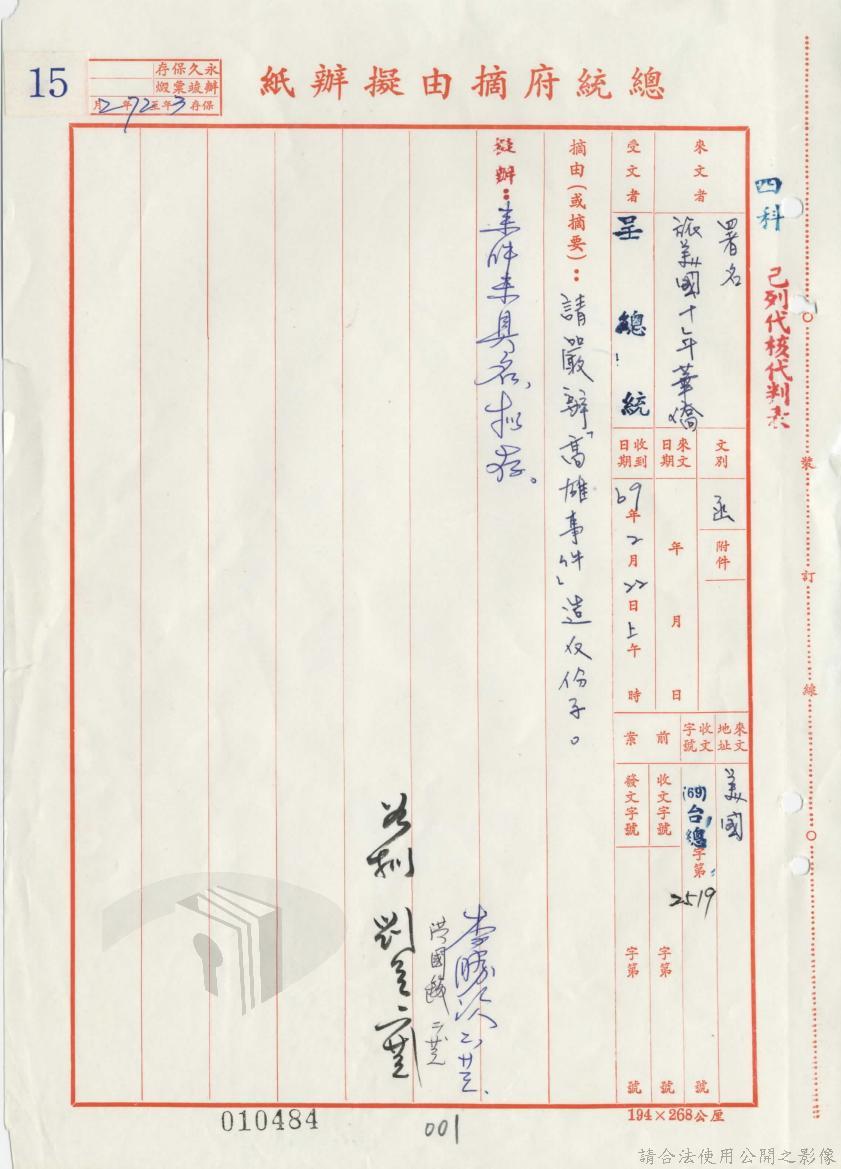 總統府摘由擬辦紙
15
永久保存
辦竣稟煅
保存3年至72年2月
四科
已列代核代判表
裝
訂
線
來文者
署名
旅美國十年華僑
受文者
呈 總統
文別
函
附件
來文日期
年 月 日
收到日期
69年2月22日上午 時
來文地址
美國
收文字號
(69)台總字第2519號
前案
收文字號
字第 號
發文字號
字第 號
摘由(或摘要):請嚴辦「高雄事件」造反份子。
擬辦:來件未具名,擬存。
李勝
洪國
如擬
劉
010484
001
194×268公厘
請合法使用公開之影像